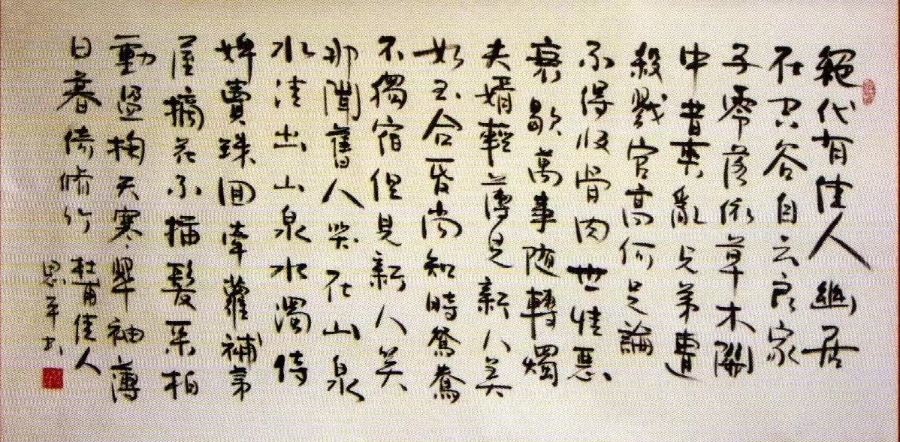 絕代有佳人幽居
在空谷自云良家
子零落依草木關
中昔喪亂兄弟遭
殺戮官高何足論
不得收骨肉世情惡
衰歇萬事随轉燭
夫婿輕薄兒新人美
如玉合昏尚知時鴛鴦
不獨宿但見新人笑
那聞舊人哭在山泉
水清出山泉水濁侍
婢賣珠回牽蘿補茅
屋摘花不插髮采柏
動盈掬天寒翠袖薄
日暮倚修竹 杜甫佳人
思平书